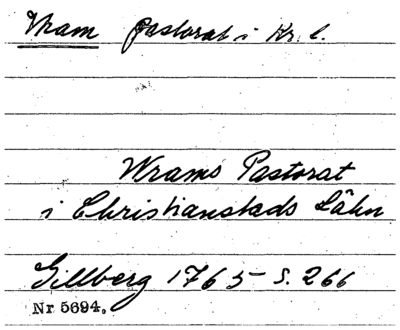 Vram pastorat i Kr. l.
Wrams Pastorat
i Christianstads Lähn
Gillberg 1765 S. 266
Nr 5694.